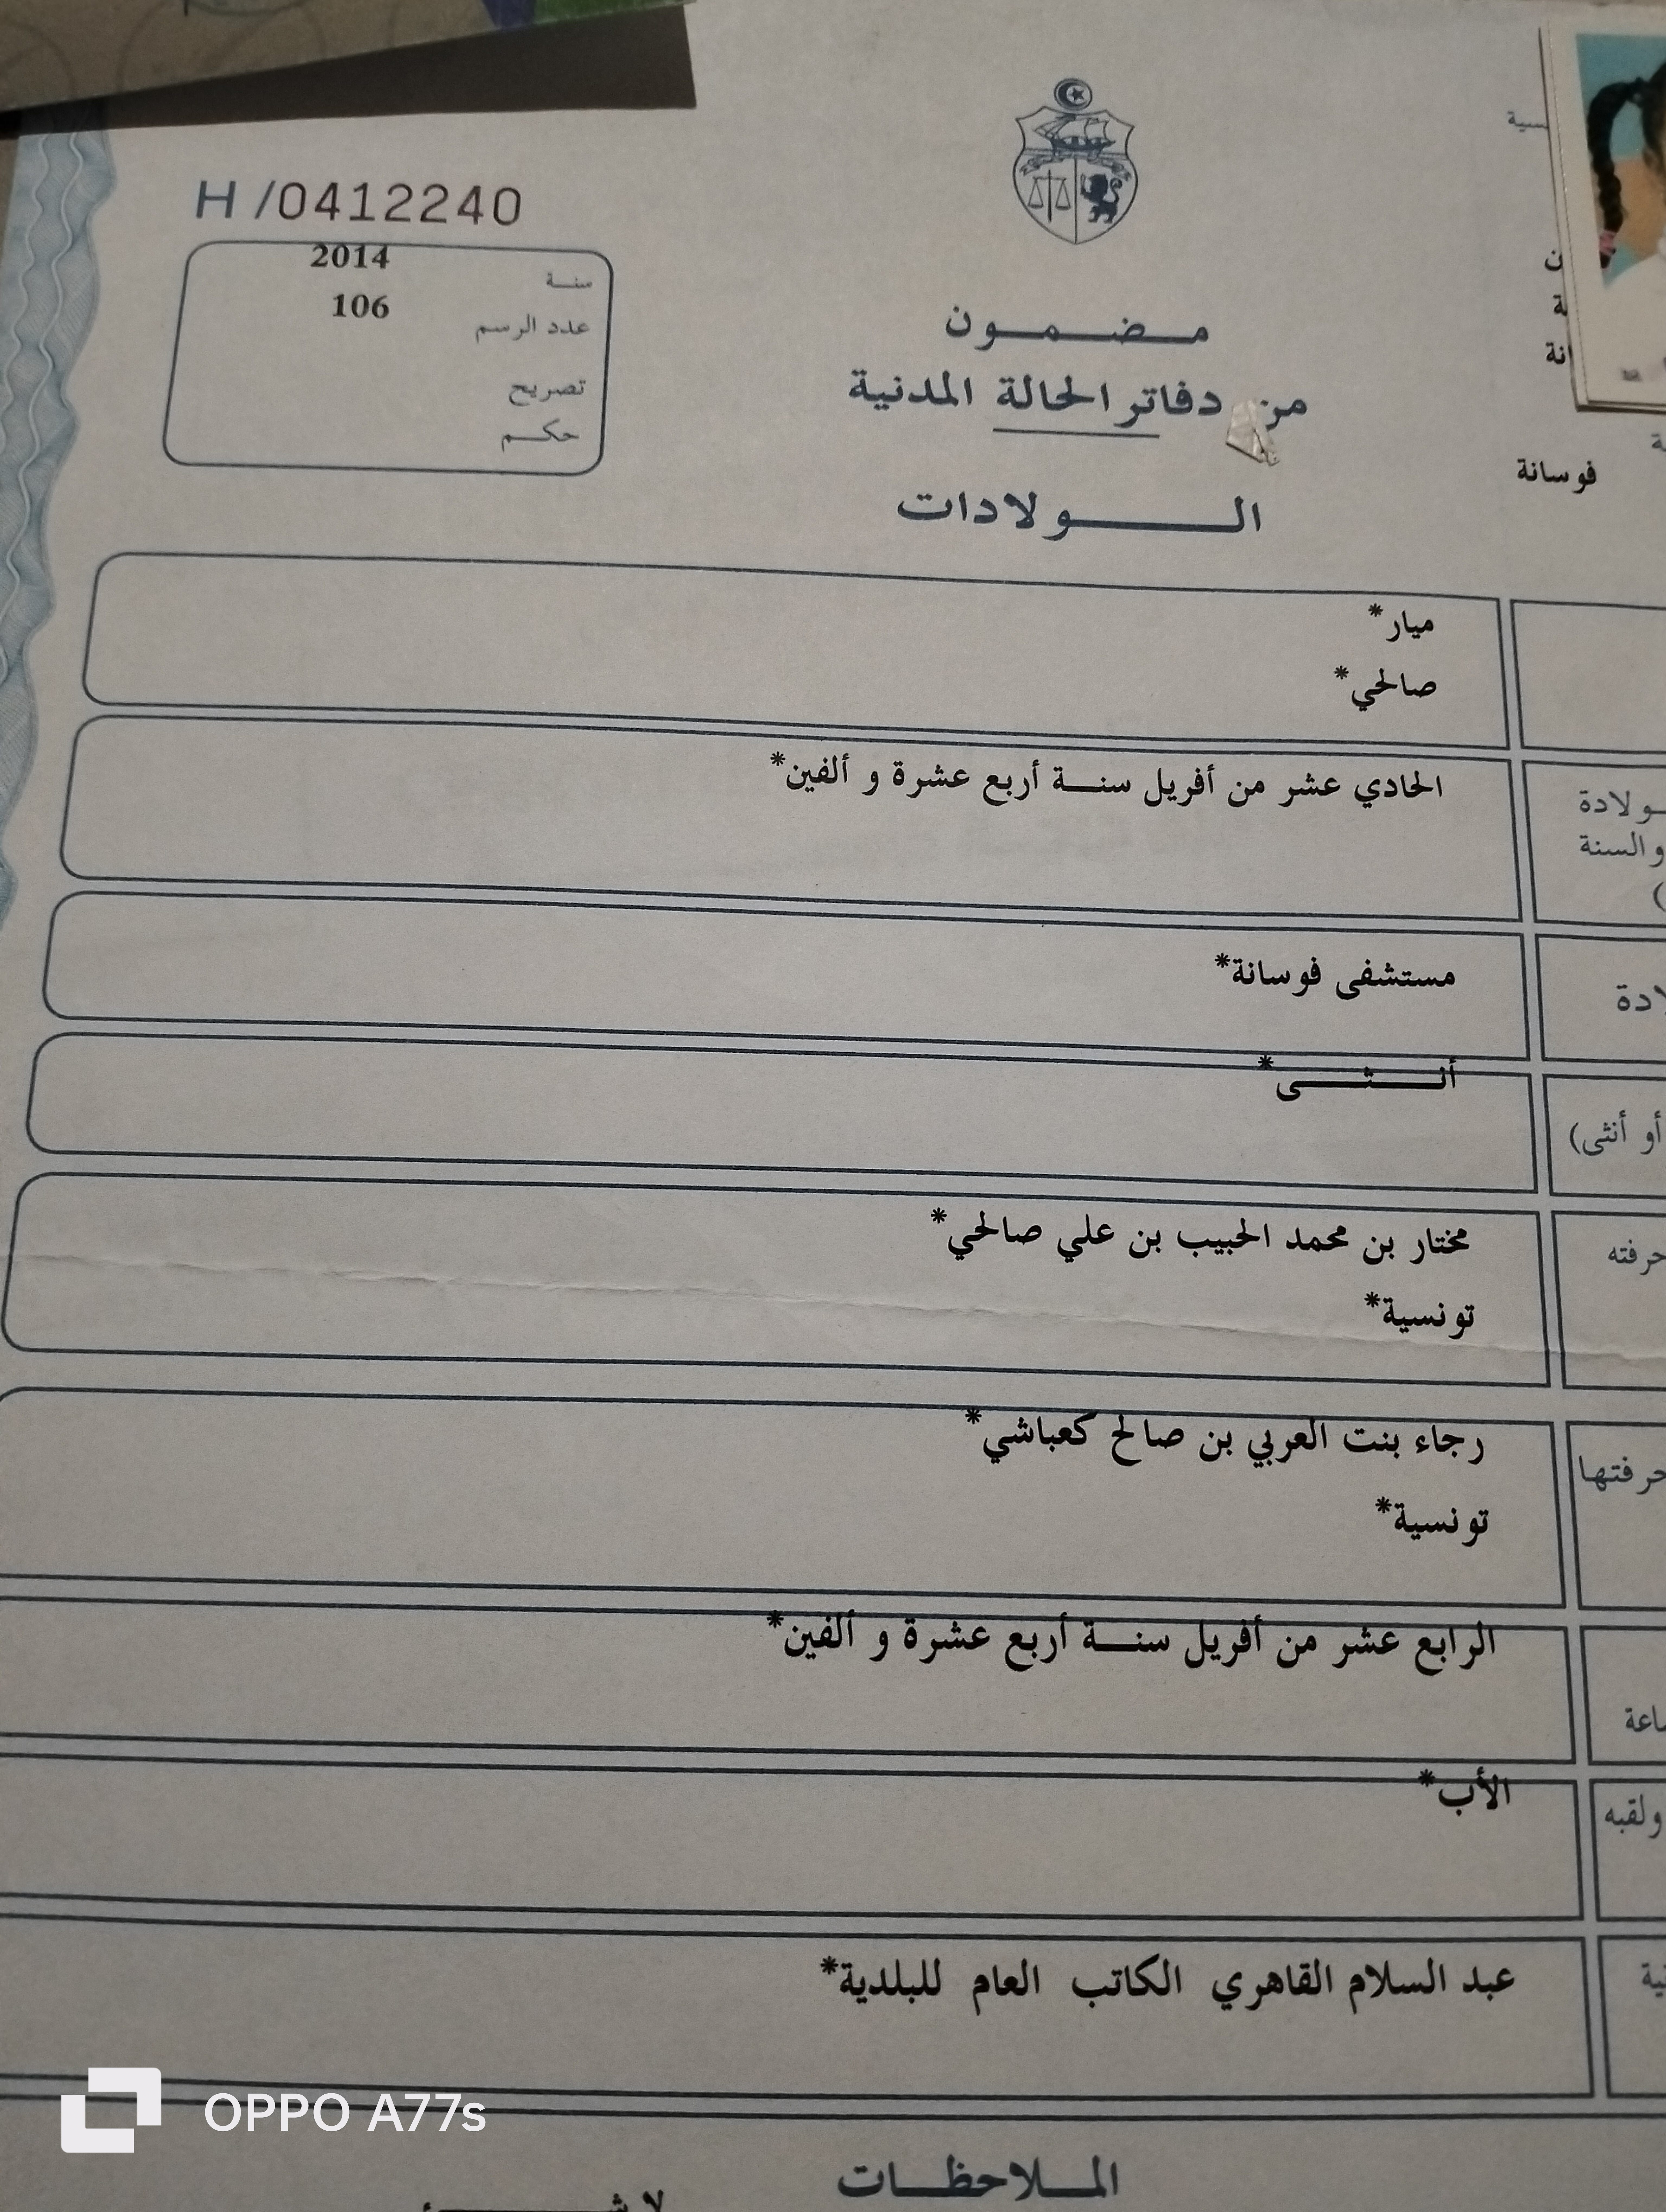 H /0412240
سنة 2014
عدد الرسم 106
تصريح
حكم
مضمون
من دفاتر الحالة المدنية
الولادات
فوسانة
ميار*
صالحي*
الحادي عشر من أفريل سنة أربع عشرة و ألفين*
ـولادة
و السنة
مستشفى فوسانة*
أنثى*
أو أنثى)
مختار بن محمد الحبيب بن علي صالحي*
حرفته
تونسية*
رجاء بنت العربي بن صالح كعباشي*
حرفتها
تونسية*
الرابع عشر من أفريل سنة أربع عشرة و ألفين*
الأب*
ولقبه
عبد السلام القاهري الكاتب العام للبلدية*
OPPO A77s
الملاحظات